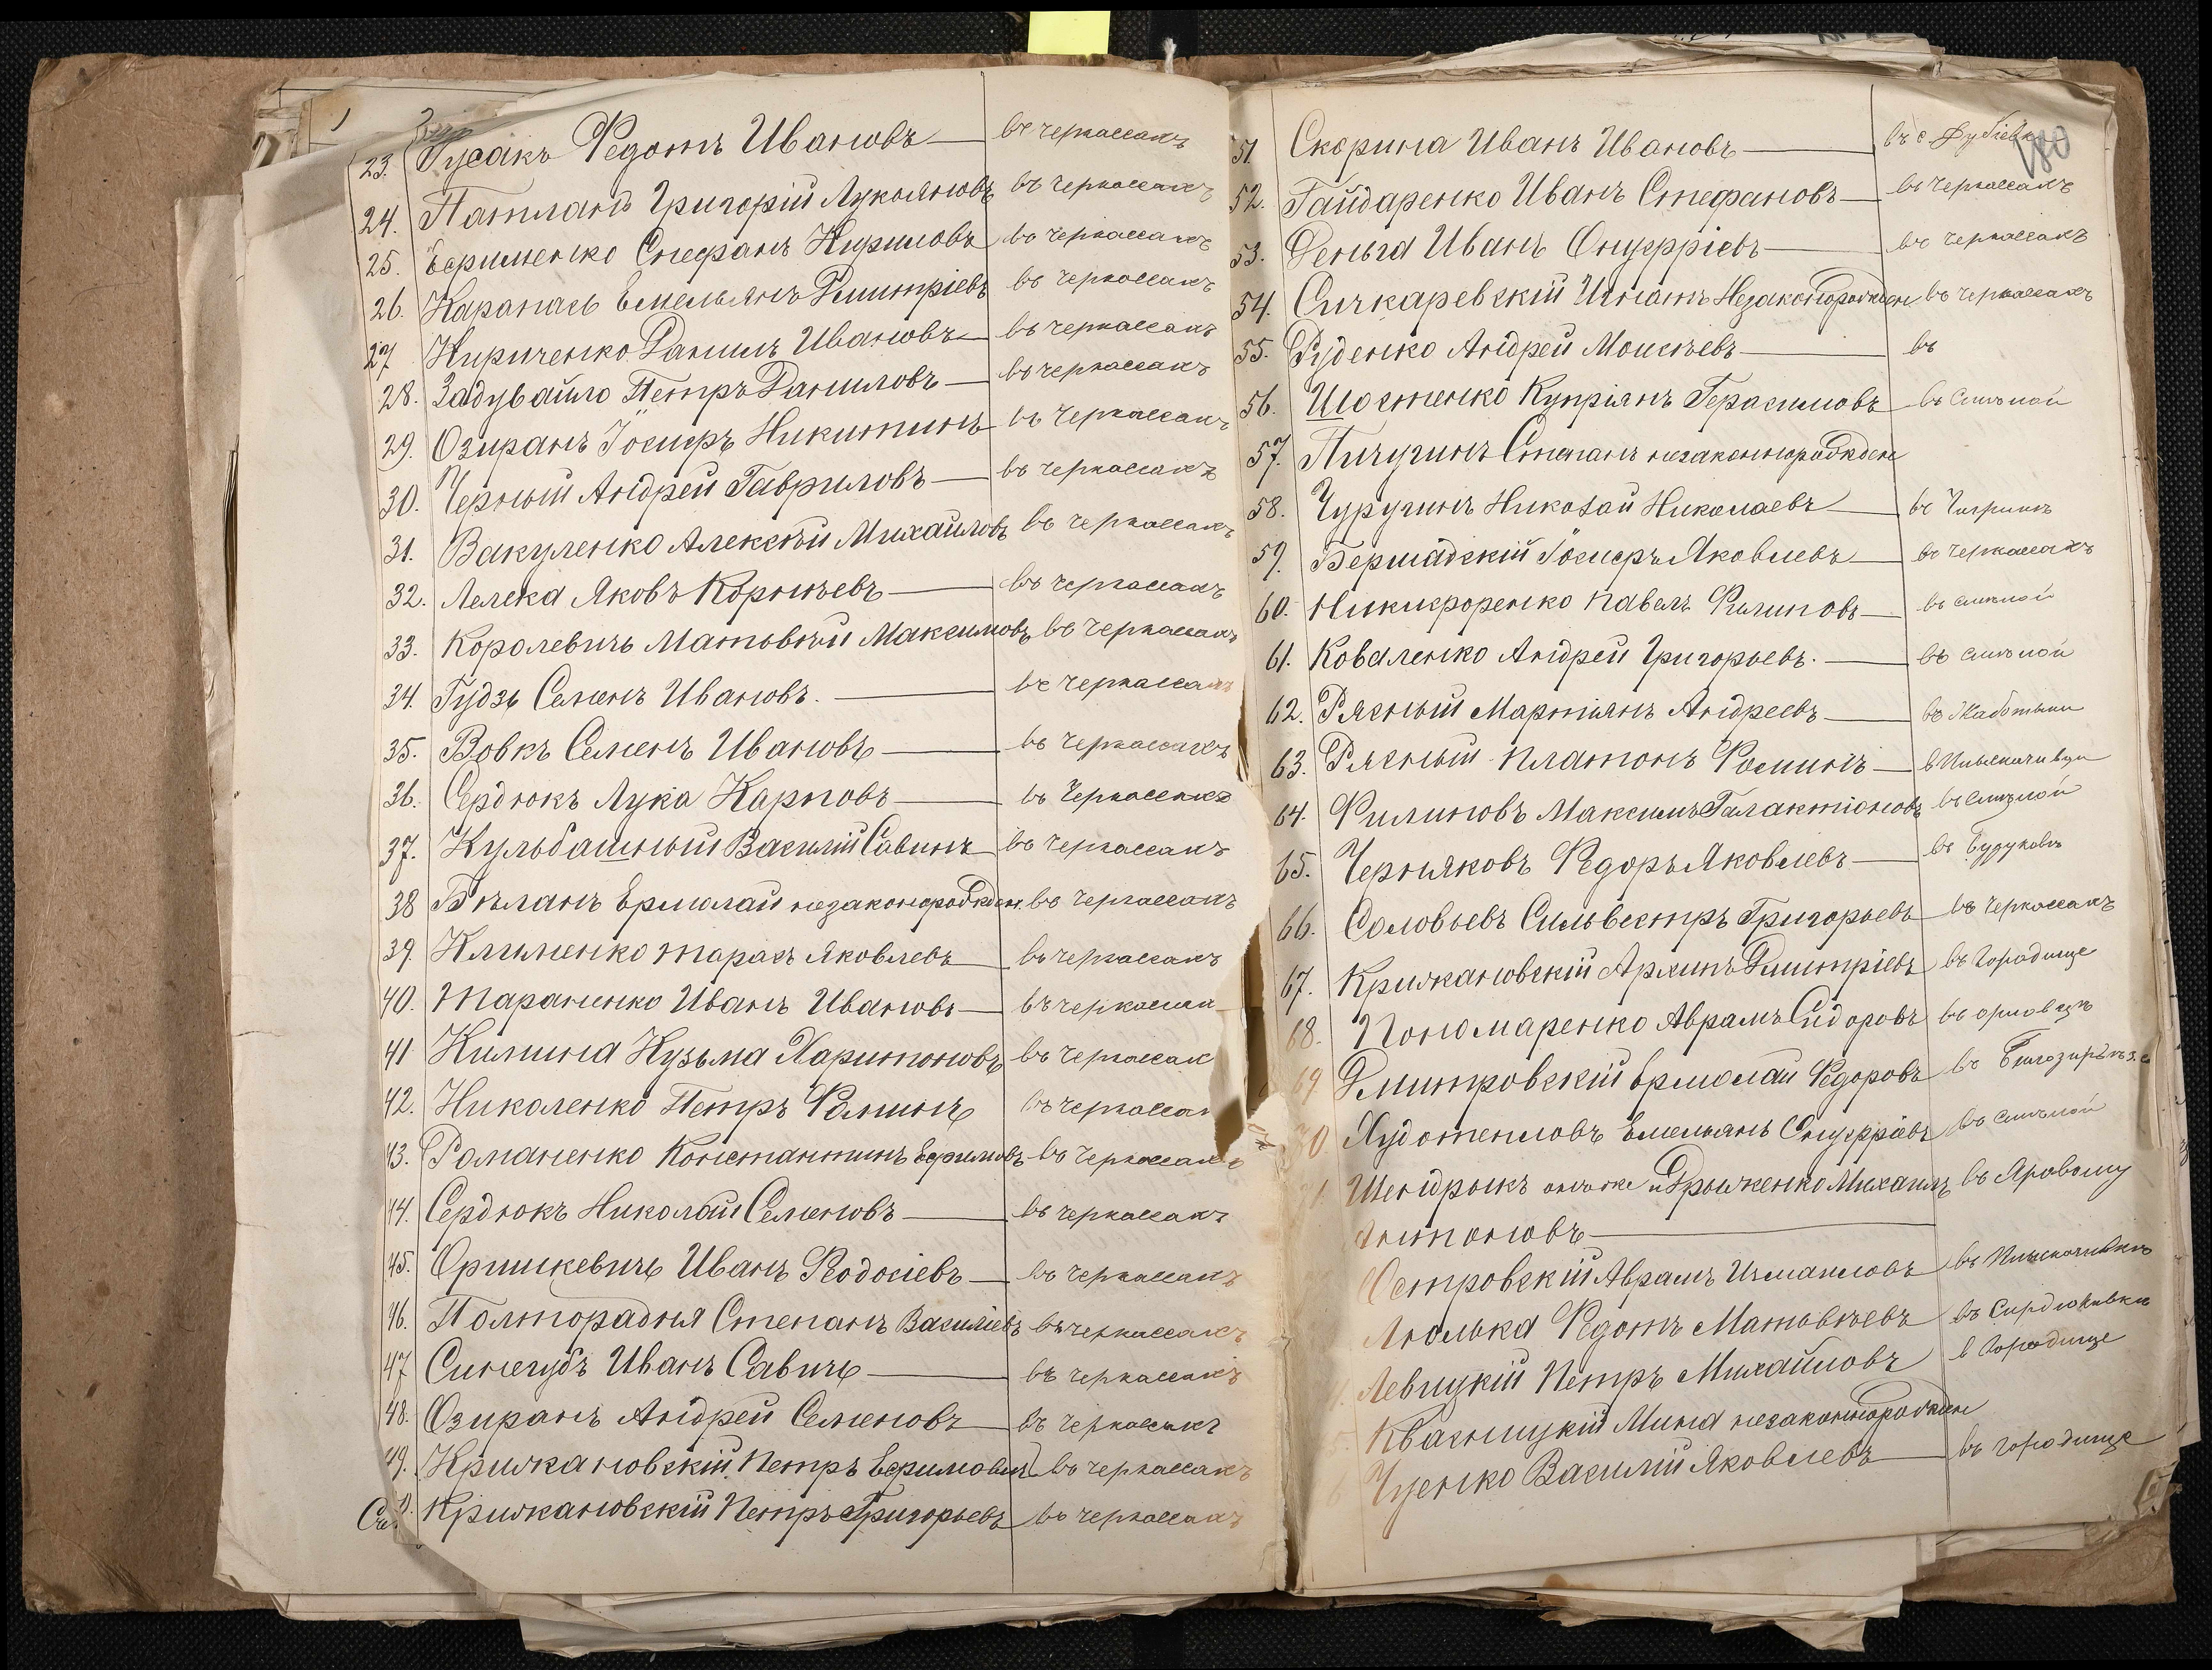 23. Гусакъ Ѳедотъ Ивановъ — въ Черкассахъ
24. Патланъ Григорій Лукьяновъ въ Черкассахъ
25. Ефименко Стефанъ Кириловъ въ Черкассахъ
26. Карапаш Емельянъ Дмитріевъ въ Черкассахъ
27 Кириченко Данилъ Ивановъ — въ Черкассахъ
28. Задувайло Петръ Даниловъ — въ Черкассахъ
29. Озиранъ Іосифъ Никитинъ въ Черкассахъ
30. Черный Андрей Гавриловъ — въ Черкассахъ
31. Вакуленко Алексѣй Михайловъ въ Черкассахъ
32. Лелека Яковъ Корнѣевъ — въ Черкассахъ
33. Королевичъ Матвѣй Максимовъ въ Черкассахъ
34. Гудзь Семенъ Ивановъ. — въ Черкассахъ
35. Вовкъ Семенъ Ивановъ — въ Черкассахъ
36. Сердюкъ Лука Карповъ — въ Черкассахъ
37. Кульбашный Василій Савинъ въ Черкассахъ
38 Бѣланъ Ермолай незаконорожден. въ Черкассахъ
39. Клименко Тарасъ Яковлевъ — въ Черкассахъ
40. Тараненко Иванъ Ивановъ — въ Черкассах
41 Килина Кузьма Харитоновъ въ Черкассах
42. Николенко Петръ Ѳоминъ въ Черкассах
43. Романенко Константинъ Ефимовъ въ Черкассахъ
44. Сердюкъ Николай Семеновъ — въ Черкассахъ
45. Оришкевичъ Иванъ Ѳеодосіевъ — въ Черкассахъ
46. Полторадня Степанъ Василіевъ въ Черкассахъ
47 Синегубъ Иванъ Савичъ — въ Черкассахъ
48. Озиранъ Андрей Семеновъ — въ Черкассахъ
49. Крижановскій Петръ Ефимовичъ въ Черкассахъ
Крижановскій Петръ Григорьевъ въ Черкассахъ
180
51. Скорина Иванъ Ивановъ — въ с Дубіевк
52. Гайдаренко Иванъ Стефановъ — въ Черкассахъ
53. Деньга Иванъ Онуфріевъ — въ Черкассахъ
54. Сичкаревскій Игнатъ Незаконорожден въ Черкассахъ
55. Руденко Андрей Моисѣевъ — въ
56. Шостенко Купріянъ Герасимовъ въ Смѣлой
57. Пичугинъ Степанъ незаконнорожден
58. Чуругинъ Николай Николаевъ — въ Чигринъ
59. Бершадскій Іосифъ Яковлевъ — въ Черкассахъ
60. Никифоренко Павелъ Филиповъ — въ Смѣлой
61. Коваленко Андрей Григорьевъ. — въ Смѣлой
62. Рясный Мартіянъ Андреевъ — въ Жаботыни
63. Рясный Платонъ Ѳоминъ —
64. Филиповъ Максимъ Галактіоновъ въ Смѣлой
65. Черняковъ Ѳедоръ Яковлевъ —
66. Соловьевъ Сильвестръ Григорьевъ въ Черкассахъ
67. Крижановскій Архипъ Дмитріевъ въ Городище
68. Пономаренко Аврамъ Сидоровъ въ Орловцъ
69 Дмитровскій Ермолай Ѳедоровъ въ
70 Худотепловъ Емельянъ Онуфріевъ въ Смѣлой
Шендрыкъ онъ же и Дрыженко Михаилъ въ Яровому
Антоновъ —
Островскій Аврамъ Измаиловъ
Люлька Ѳедотъ Матвѣевъ въ Сердюковки
Левицкій Петръ Михайловъ в Городище
Квасницкій Мина незаконнорожден
Чуенко Василій Яковлевъ — въ Городище